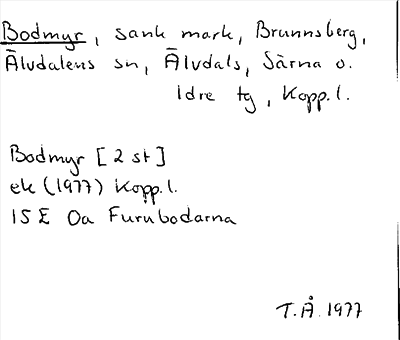 Bodmyr, sank mark, Brunnsberg,
Älvdalens sn, Älvdals, Särna o.
Idre tg, Kopp.l.
Bodmyr [2 st]
ek (1977) Kopp.l.
15 E Oa Furubodarna
T.Å. 1977